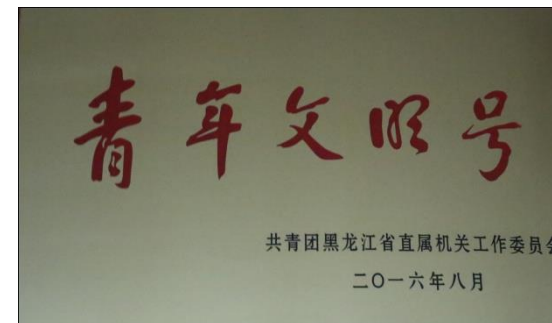 青年文明号
共青团黑龙江省直属机关工作委员会
二〇一六年八月